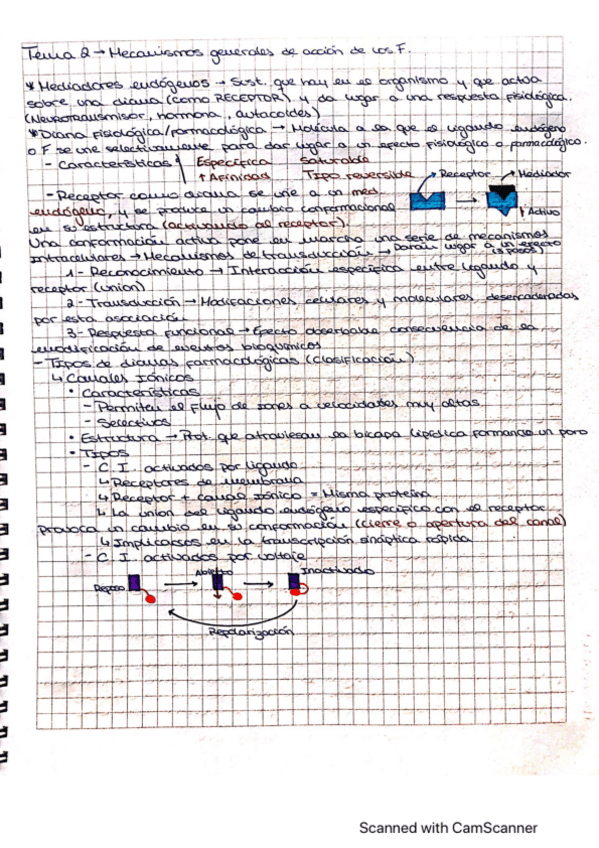 Tema 2 → Mecanismos generales de acción de los F.
* Mediadores endógenos → Sust. que hay en el organismo y que actúa
sobre una diana (como RECEPTOR) y da lugar a una respuesta fisiológica.
(Neurotransmisor, hormona, autacoides)
* Diana fisiológica/farmacológica → Molécula a la que el ligando endógeno
o F se une selectivamente para dar lugar a un efecto fisiológico o farmacológico.
- Características Específica Saturable
↑ Afinidad Tipo reversible
Receptor Mediador
- Receptor como diana se une a un med.
endógeno, y se produce un cambio conformacional
en su estructura (activando al receptor).
Activo
Una conformación activa pone en marcha una serie de mecanismos
intracelulares → Mecanismos de transducción → Darán lugar a un efecto
(3 pasos)
1- Reconocimiento → Interacción específica entre ligando y
receptor (unión)
2- Transducción → Modificaciones celulares y moleculares desencadenadas
por esta asociación
3- Respuesta funcional → Efecto observable consecuencia de la
modificación de eventos bioquímicos
- Tipos de dianas farmacológicas (Clasificación)
↳ Canales Iónicos
• Características
- Permiten el flujo de iones a velocidades muy altas
- Selectivos
• Estructura → Prot. que atraviesan la bicapa lipídica formando un poro
• Tipos
- C.I. activados por ligando
↳ Receptores de membrana
↳ Receptor + canal iónico = Misma proteína
↳ La unión del ligando endógeno específico con el receptor
provoca un cambio en su conformación (cierre o apertura del canal)
↳ Implicados en la transcripción sináptica rápida
- C.I. activados por voltaje
Reposo Abierto Inactivado
Repolarización
Scanned with CamScanner